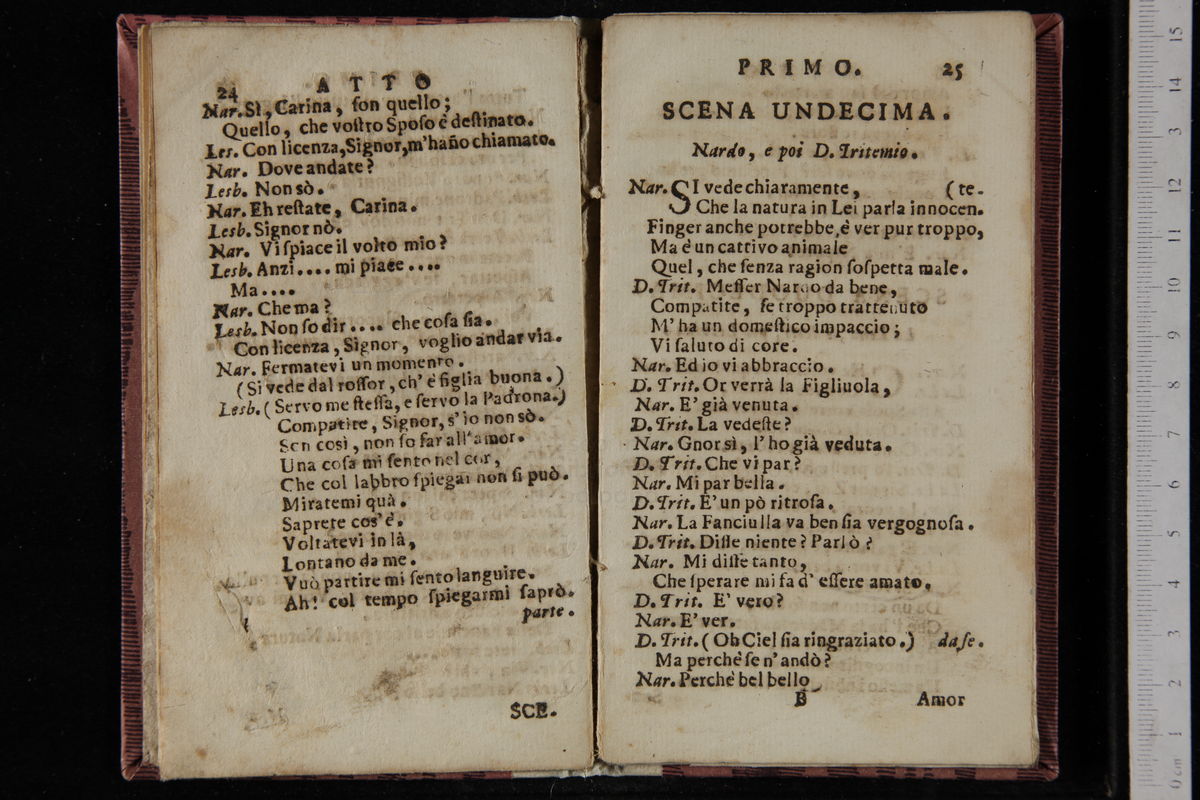 24 ATTO
Nar. Sì, Carina, ſon quello;
Quello, che voſtro Spoſo è deſtinato.
Les. Con licenza, Signor, m'hãno chiamato.
Nar. Dove andate?
Lesb. Non sò.
Nar. Eh reſtate, Carina.
Lesb. Signor nò.
Nar. Vi ſpiace il volto mio?
Lesb. Anzi.... mi piace....
Ma....
Nar. Che ma?
Lesb. Non ſo dir.... che coſa ſia.
Con licenza, Signor, voglio andar via.
Nar. Fermatevi un momento.
(Si vede dal roſſor, ch' è figlia buona.)
Lesb. (Servo me ſteſſa, e ſervo la Padrona.)
Compatite, Signor, s' io non sò.
Son così, non ſo far all' amor.
Una coſa mi ſento nel cor,
Che col labbro ſpiegar non ſi può.
Miratemi quà.
Saprete cos' è.
Voltatevi in là,
Lontano da me.
Vuò partire mi ſento languire.
Ah! col tempo ſpiegarmi ſaprò.
parte.
SCE.
PRIMO. 25
SCENA UNDECIMA.
Nardo, e poi D. Tritemio.
Nar. SI vede chiaramente, (te.
Che la natura in Lei parla innocen.
Finger anche potrebbe, è ver pur troppo,
Ma è un cattivo animale
Quel, che ſenza ragion ſoſpetta male.
D. Trit. Meſſer Nardo da bene,
Compatite, ſe troppo trattenuto
M' ha un domeſtico impaccio;
Vi ſaluto di core.
Nar. Ed io vi abbraccio.
D. Trit. Or verrà la Figliuola,
Nar. E' già venuta.
D. Trit. La vedeſte?
Nar. Gnor sì, l' ho già veduta.
D. Trit. Che vi par?
Nar. Mi par bella.
D. Trit. E' un pò ritroſa.
Nar. La Fanciulla va ben ſia vergognoſa.
D. Trit. Diſſe niente? Parlò?
Nar. Mi diſſe tanto,
Che ſperare mi fa d' eſſere amato.
D. Trit. E' vero?
Nar. E' ver.
D. Trit. (Oh Ciel ſia ringraziato.) da ſe.
Ma perchè ſe n' andò?
Nar. Perchè bel bello
B Amor